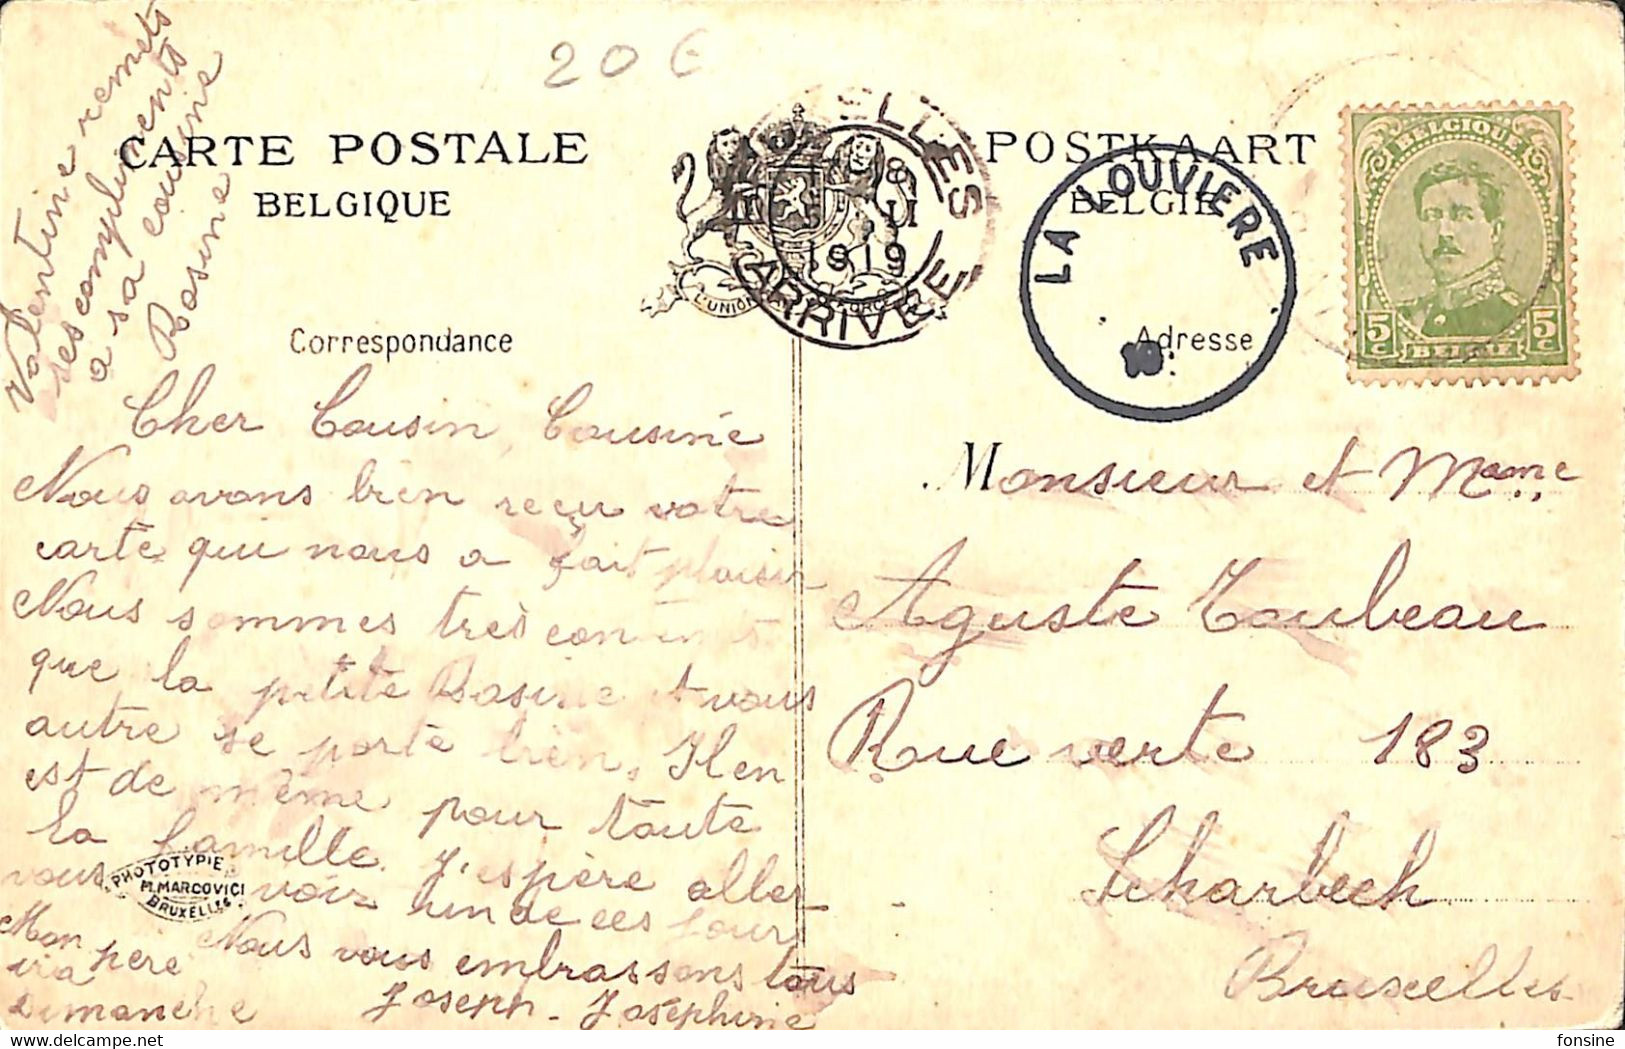 20 €
Valentine remets
ses compliments
a sa cousine
Rosine
CARTE POSTALE
BELGIQUE
POSTKAART
BELGIË
L'UNION
ELLES
8
II II
1919
ARRIVEE
LA LOUVIERE
19
BELGIQUE
5 C 5 C
BELGIE
Correspondance
Adresse
Cher Cousin, Cousine
Nous avons bien reçu votre
carte qui nous a fait plaisir
Nous sommes très contents
que la petite Rosine et vous
autre se porte bien. Il en
est de même pour toute
la famille. J'espère aller
vous voir un de ces jour
Nous vous embrassons tous
Joseph - Joséphine
Mon père
ira
Dimanche
PHOTOTYPIE
M. MARCOVICI
BRUXELLES
Monsieur et Mame
Aguste Toubeau
Rue verte 183
Scharbeck
Bruxelles
fonsine